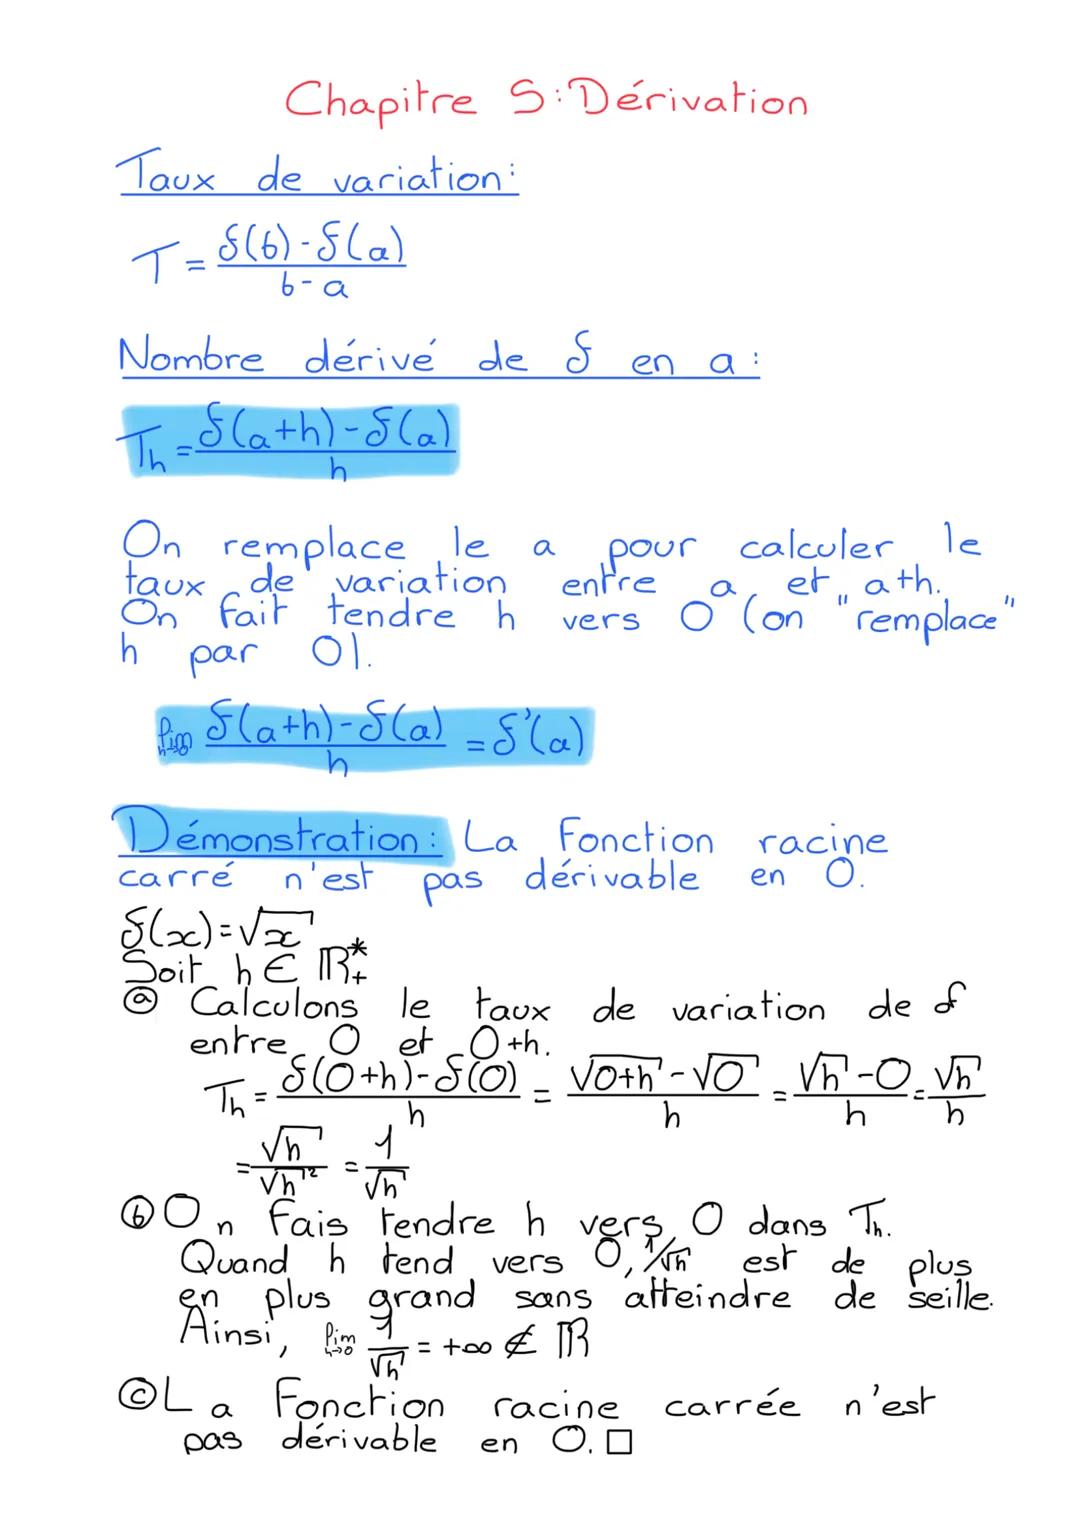 Chapitre 5: Dérivation
Taux de variation:
T = f(b)-f(a) / b-a
Nombre dérivé de f en a:
Th = f(a+h)-f(a) / h
On remplace le a pour calculer le
taux de variation entre a et a+h.
On fait tendre h vers 0 (on "remplace"
h par 0).
lim h→0 f(a+h)-f(a) / h = f'(a)
Démonstration: La fonction racine
carré n'est pas dérivable en 0.
f(x)=√x
Soit h ∈ ℝ*+
ⓐ Calculons le taux de variation de f
entre 0 et 0+h.
Th = f(0+h)-f(0) / h = √0+h - √0 / h = √h - 0 / h = √h / h
= √h / √h² = 1 / √h
ⓑ On fais tendre h vers 0 dans Th.
Quand h tend vers 0, 1/√h est de plus
en plus grand sans atteindre de seille.
Ainsi, lim h→0 1 / √h = +∞ ∉ ℝ
ⓒ La fonction racine carrée n'est
pas dérivable en 0. □